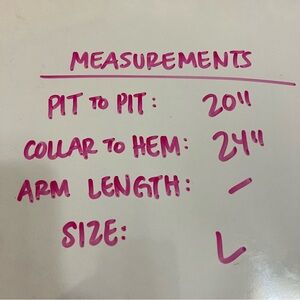 MEASUREMENTS
PIT TO PIT: 20"
COLLAR TO HEM: 24"
ARM LENGTH: -
SIZE: L